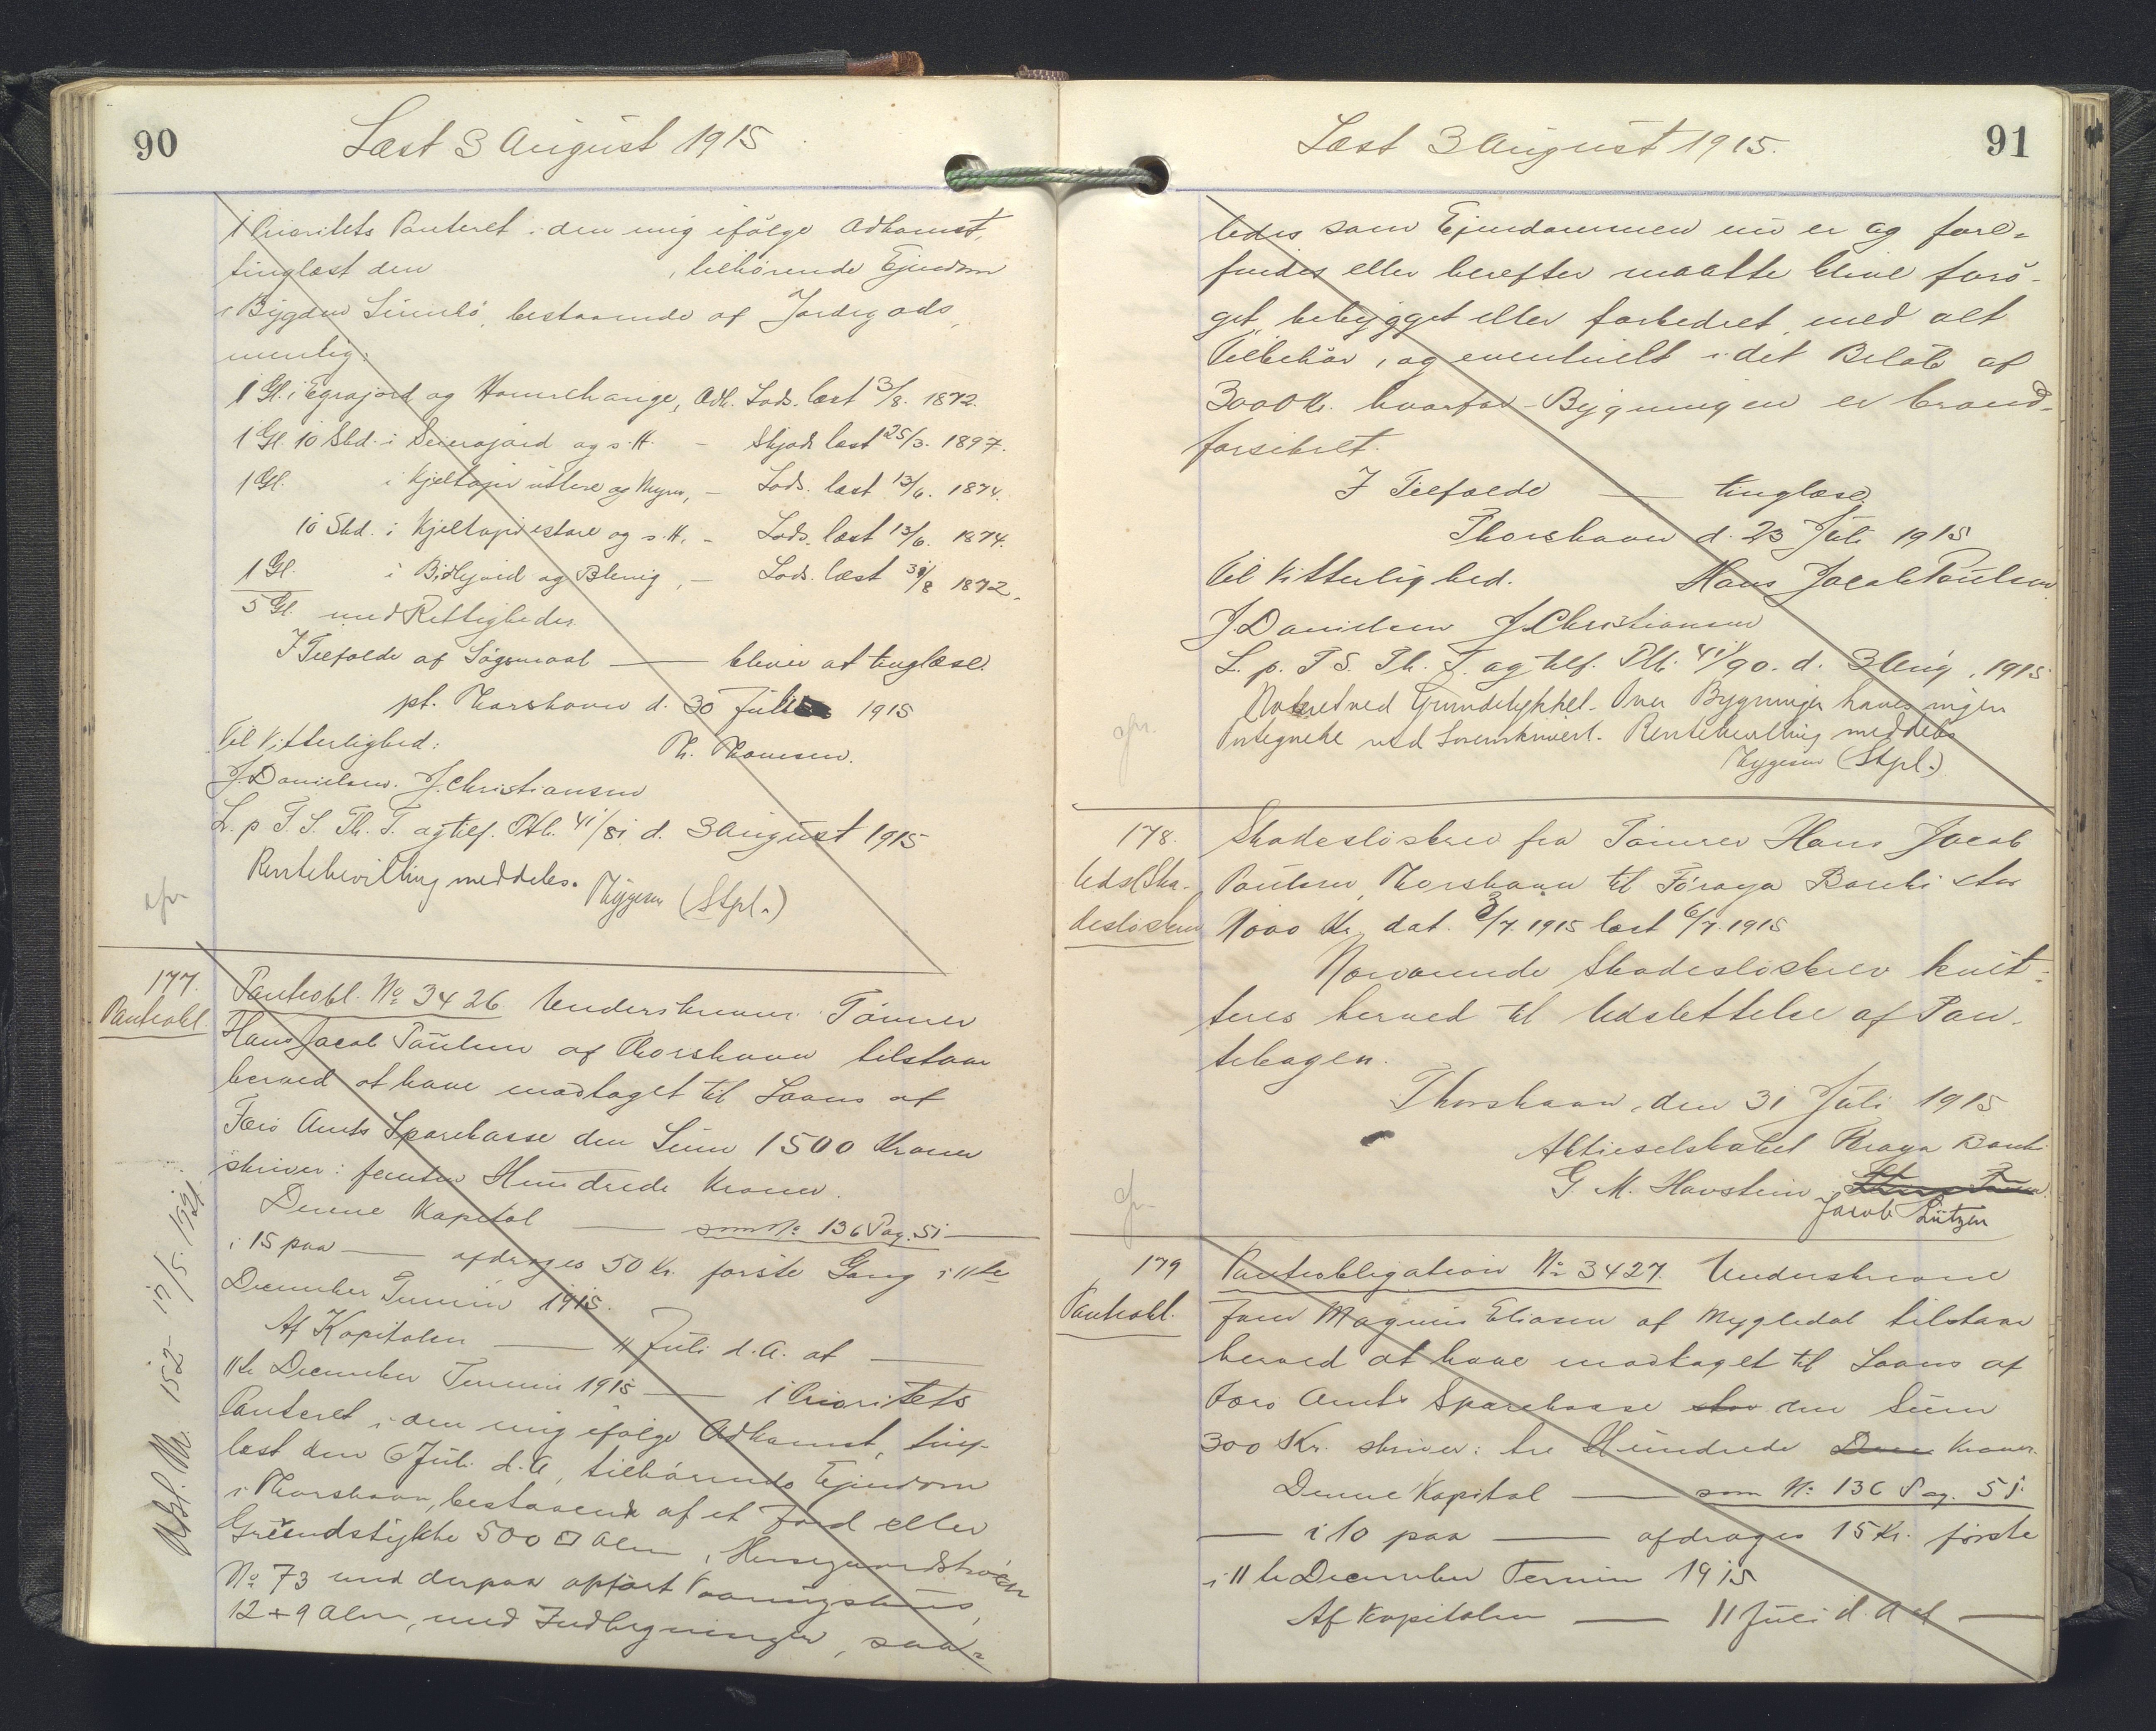 90
Læst 3 August 1915
1 Prioritets Panteret i den mig ifølge Adkomst,
tinglæst den , tilhørende Ejendom
i Bygden Sumbø, bestaaende af Jordegods,
nemlig:
1 Gl. i Egrajord og Homrehauge, Adk. Lods. læst 3/8. 1872.
1 Gl. 10 Skd. i og s. H. - Skjøde læst 25/3. 1897.
1 Gl. i Kjeltagir uttere og Myrn, - Lods. læst 13/6. 1874.
10 Skd. i Kjeltagir estare og s. H. - Lods. læst 13/6. 1874.
1 Gl. i og - Lods. læst 31/8 1872.
5 Gl. med Rettigheder
I Tilfælde af Søgsmaal — bliver at tinglæse.
pt. Thorshavn d. 30 Juli 1915
Til Vitterlighed: Th. Thomsen.
J. Danielsen. J. Christiansen
L. p T. S. Th. T. og tilf. Ptb. 41/81 d. 3 August 1915
Rentebevilling meddeles. Thygesen (Stpl.)
cfr
177.
Panteobl.
Panteobl. No 3426. Underskrevne Tømrer
Hans Jacob Poulsen af Thorshavn tilstaar
herved at have modtaget til Laans af
Færø Amts Sparekasse den Sum 1500 Kroner
skriver: femten Hundrede Kroner.
Denne Kapital — som No 136 Pag. 51 —
i 15 paa — afdrages 50 Kr. første Gang i 11te
December Termin 1915.
Af Kapitalen — 11 Juli d. A. at —
11te December Termin 1915 — 1 Prioritets
Panteret i den mig ifølge Adkomst, ting-
læst den 6 Juli d. A, tilhørende Ejendom
i Thorshavn, bestaaende af et Jord eller
Grundstykke 500 □ Alen i
No 73 med derpaa opført Vaaningshus,
12 + 9 Alen, med Indbygninger, saa-
Udsl. No. 152 - 11/5. 1921.
91
Læst 3 August 1915.
ledes som Ejendommen nu er og fore-
findes eller herefter maatte blive forø-
get, bebygget eller forbedret, med alt
Tilbehør, og eventuelt i det Beløb af
3000 Kr. hvorfor Bygningen er brand-
forsikret.
I Tilfælde — tinglæse.
Thorshavn d. 23 Juli 1915
Til Vitterlighed. Hans Jacob Poulsen.
J. Danielsen J. Christiansen
L. p. T S. Th. T. og tilf. Ptb. 41/90. d. 3 Aug. 1915
Noteret ved Grundstykket. Over Bygninger haves ingen
Optegnelse ved Sorenskriveri. Rentebevilling meddeles
Thygesen (Stpl.)
cfr.
178.
Udsl. Ska-
desløsbrev
Skadesløsbrev fra Tømrer Hans Jacob
Poulsen, Thorshavn til Føroya Banki stor
1000 Kr, dat. 3/7. 1915 læst 6/7. 1915
Nærværende Skadesløsbrev kvit-
teres herved til Udslettelse af Pan-
tebogen.
Thorshavn, den 31 Juli 1915
Aktieselskabet Føroya Banki
G M. Havstein
Jacob Lützen
cfr
179
Panteobl.
Panteobligation No 3427. Underskrevne
Joen Magnus Eliasen af Mygledal tilstaar
herved at have modtaget til Laans af
Færø Amts Sparekasse stor den Sum
300 Kr. skriver: tre Hundrede Kroner.
Denne Kapital — som No 136 Pag. 51.
— i 10 paa — afdrages 15 Kr. første
i 11te December Termin 1915
Af Kapitalen — 11 Juli d. A at —